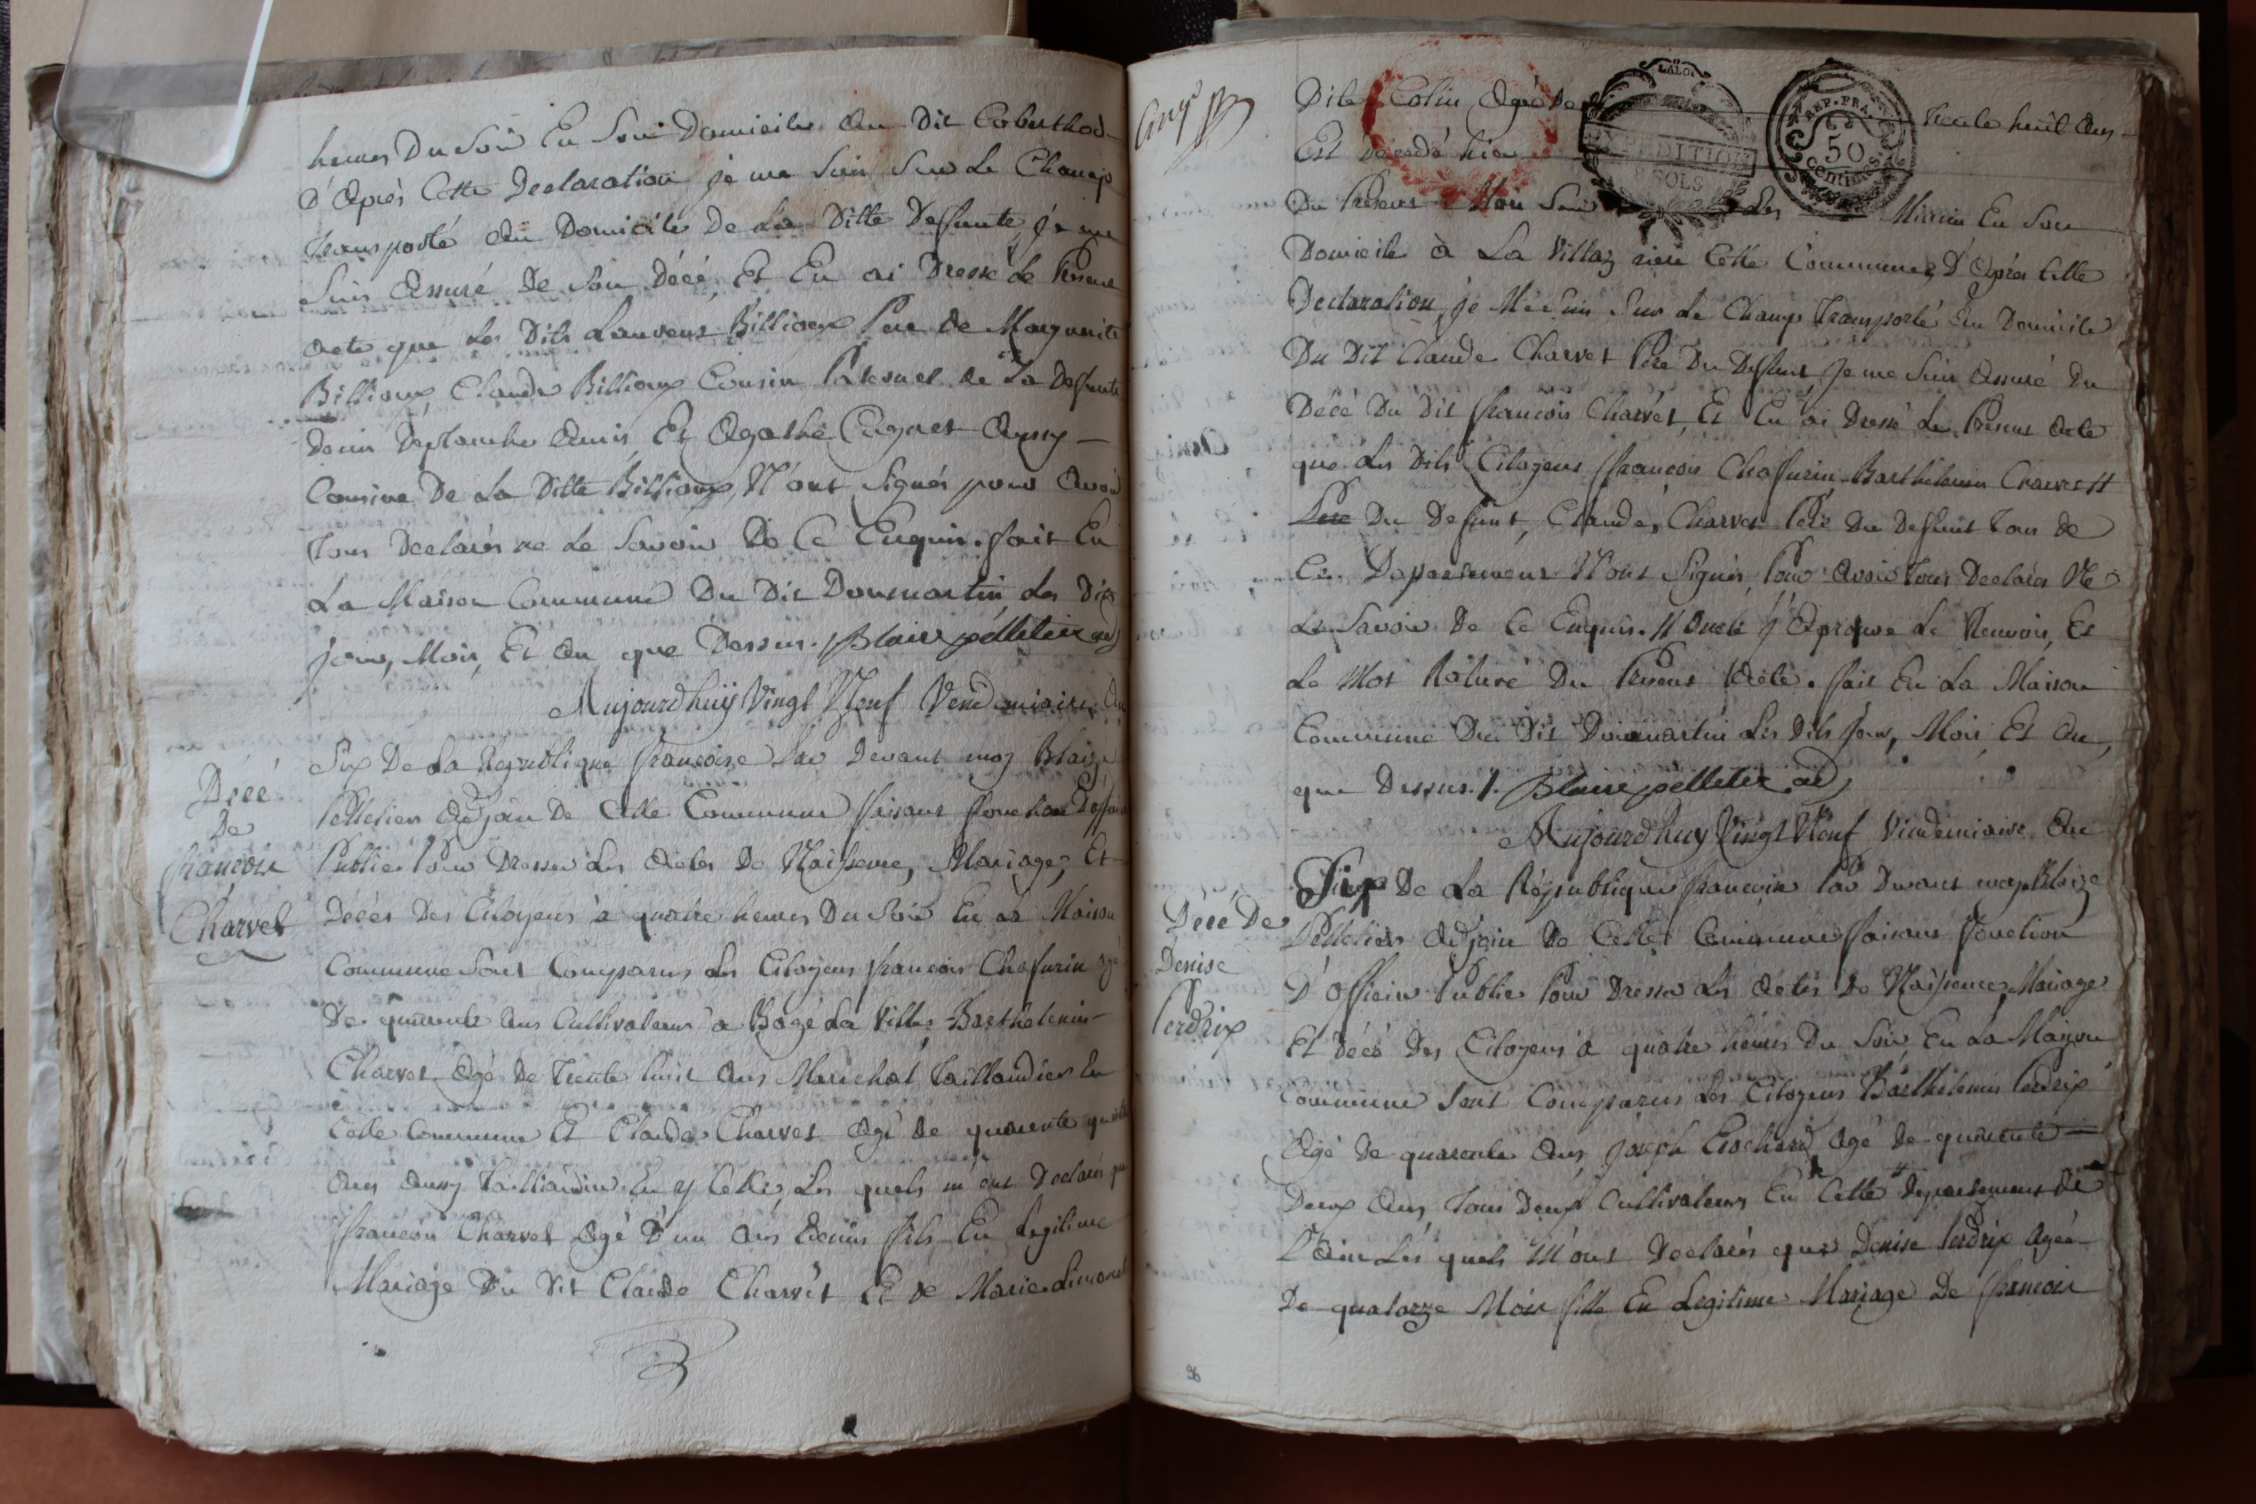 heures Du Soir En Son Domicile Au Dit Coberthod
D'Après Cette Declaration je me Suis Sur Le Champ
transporté Au Domicile De La Ditte Deffunte je me
Suis Assuré De Son Décé, Et En ai Dressé Le Present
Acte que Les Dits Laurent Billioux Pere De Marguerite
Billioux, Claude Billioux Cousin Paternel de La Deffunte
Denis Deplanche Amis Et Agathe Cagnet Aussy
Cousine De La Ditte Billioux, N'ont Signés pour Avoir
Tous Declarés ne Le Savoir De Ce Enquis. fait En
La Maison Commune Du Dit Dommartin Les Dits
jour, Mois, Et An que Dessus. Blaise pelletier adj
Aujourd'huÿ Vingt Neuf Vendemiaire An
Six De La Republique françoise Par Devant moy Blaize
Pelletier Adjoin De Cette Commune faisant fonction Doffice
Public Pour Dresser Les Actes De Naissence, Mariage, Et
Décés Des Citoyens à quatre heures Du Soir En La Maison
Commune Sont Comparus Les Citoyens françois Chafurin agé
De quarente Ans Cultivateur a Bagé La Ville, Barthelemi
Charvet Agé De Trente huit Ans Marechal Taillandier En
Cette Commune Et Claude Charvet Agé De quarente quatre
Ans Aussy Taillandier En y Celle, Les quels m'ont Declarés que
françois Charvet Agé D'un Ans Demis fils En Legitime
Mariage Du Dit Claude Charvet Et De Marie
Décé
De
françois
Charvet
Dite Colin Agé De Trente huit Ans
Est decedé hier
Du Present Mois Les En Son
Domicile à La Villaz riere Cette Commune, D'Après Cette
Declaration, je Me Suis Sur Le Champ Transporté Au Domicile
Du Dit Claude Charvet Pere Du Deffunt, je me Suis Assuré Du
Décé Du Dit françois Charvet, Et En ai Dressé Le Present Acte
que Les Dits Citoyens françois Chafurin Barthelemi Charvet //
Pere Du Defunt, Claude, Charvet Pere Du Defunt Tous De
Ce Departement N'ont Signés Pour Avoir Tous Declarés Ne
Le Savoir De Ce Enquis. // Oncle J'Aprouve Le Renvois, Et
Le Mot Raturé Du Present Acte. fait En La Maison
Commune Du Dit Dommartin Les Dits Jour, Mois Et An,
que Dessus. /. Blaise pelletier adj
Aujourd'huy Vingt Neuf Vendemiaire An
Six De La République françoise Par Devant moy Blaize
Pelletier Adjoin De Cette Commune faisant fonction
D'Officier Public Pour Dresser Les Actes De Naissence, Mariage
Et Décés Des Citoyens à quatre heures Du Soir En La Maison
Commune Sont Comparus Les Citoyens Barthelemi Perdrix
Agé De quarente Ans, Joseph Crochard Agé De quarente
Deux Ans, Tous Deux Cultivateurs En Cette Departement De
L'Ain Les quels M'ont Declarés que Denise Perdrix Agée
De quatorze Mois fille En Legitime Mariage De francois
Décé De
Denise
Perdrix
LALO
EXPEDITION
SOLS
REP. FRA.
50
Centimes
96